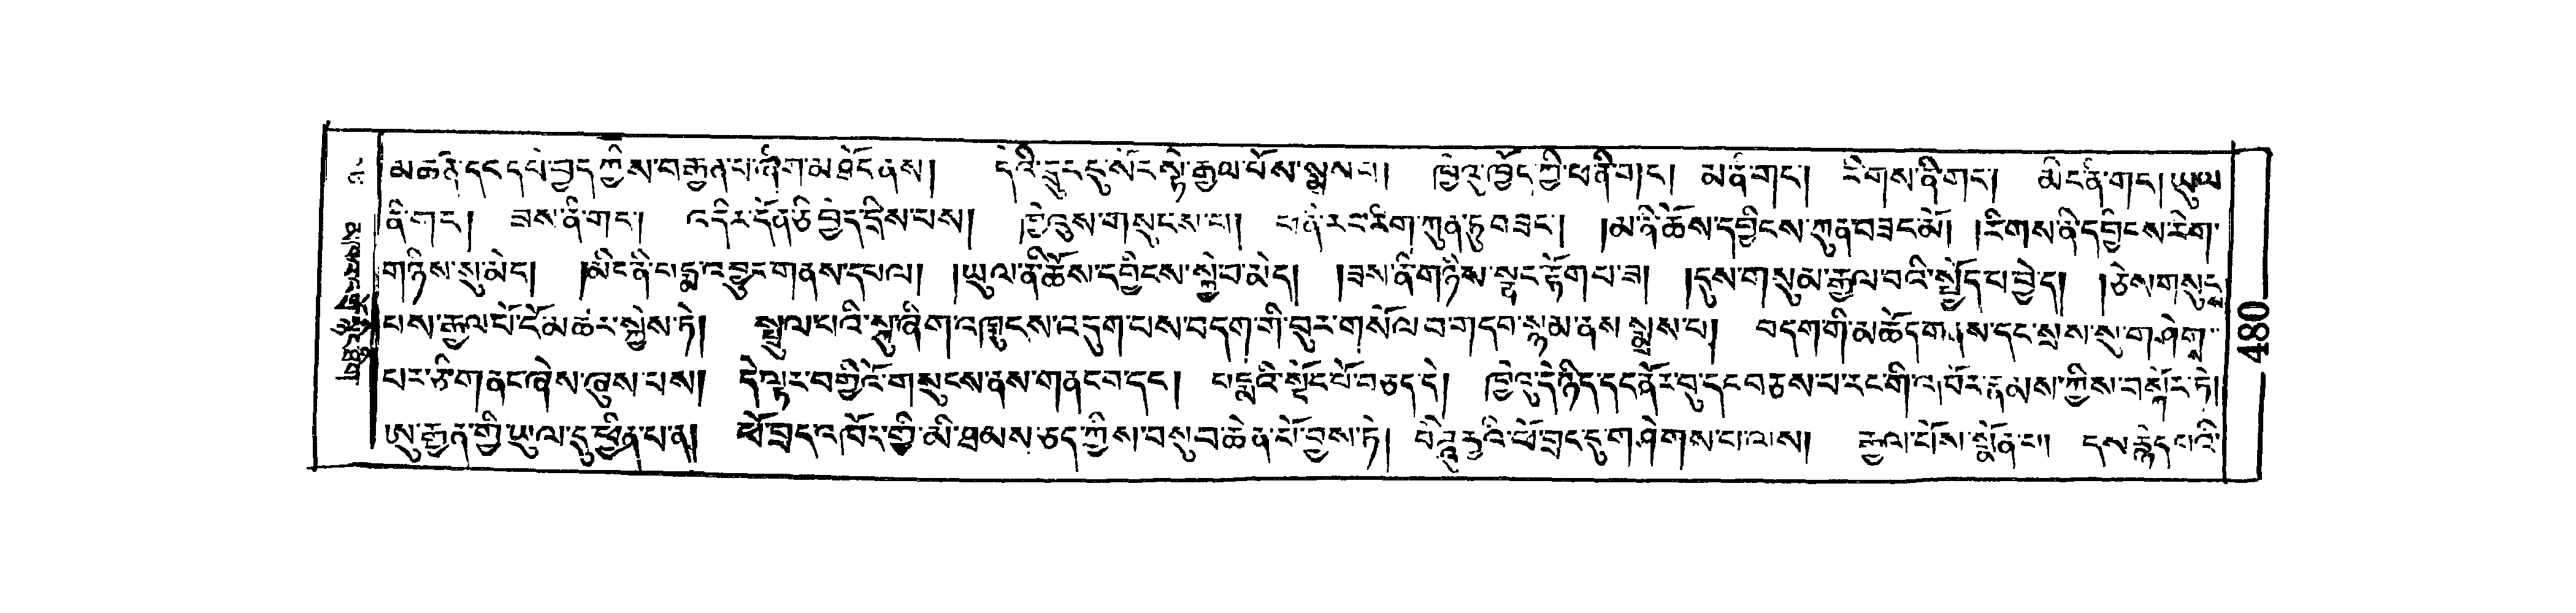 མཚན་དང་དཔེ་བྱད་ཀྱིས་བརྒྱན་པ་ཞིག་མཐོང་ནས། དེའི་དྲུང་དུ་སོར་སྟེ་རྒྱལ་པོས་སྨྲས་པ། ཁྱེའུ་ཁྱོད་ཀྱི་ཕ་ནི་གང་། མ་ནི་གང་། རིགས་ནི་གང་། མིང་ནི་གང་། ཡུལ
ནི་གང་། ཟས་ནི་གང་། འདིར་དོན་ཅི་བྱེད་དྲིས་པས། ཁྱེའུས་གསུངས་པ། ཕ་ནི་རང་རིག་ཀུན་ཏུ་བཟང་། །མ་ནི་ཆོས་དབྱིངས་ཀུན་བཟང་མོ། །རིགས་ནི་དབྱིངས་རིག་
གཉིས་སུ་མེད། །མིང་ནི་པདྨ་འབྱུང་གནས་དཔལ། །ཡུལ་ནི་ཆོས་དབྱིངས་སྐྱེ་བ་མེད། །ཟས་ནི་གཉིས་སྣང་རྟོག་པ་ཟ། །དུས་གསུམ་རྒྱལ་བའི་སྤྱོད་པ་བྱེད། །ཅེས་གསུངས
པས་རྒྱལ་པོ་ངོ་མཚར་སྐྱེས་ཏེ། སྤྲུལ་པའི་སྐུ་ཞིག་འཁྲུངས་འདུག་པས་བདག་གི་བུར་གསོལ་བ་གདབ་སྙམ་ནས་སྨྲས་པ། བདག་གི་མཆོད་གནས་དང་སྲས་སུ་གཤེག་
པར་ཅི་གནང་ཞེས་ཞུས་པས། དེ་ལྟར་བགྱིའོ་གསུངས་ནས་གནང་བ་དང་། པདྨའི་སྡོང་པོ་བཅད་དེ། ཁྱེའུ་དེ་ཉིད་དང་ནོར་བུ་དང་བཅས་པ་རང་གི་འཁོར་རྣམས་ཀྱིས་བསྐོར་ཏེ།
ཨུ་རྒྱན་གྱི་ཡུལ་དུ་ཕྱིན་པ་ན། ཕོ་བྲང་འཁོར་གྱི་མི་ཐམས་ཅད་ཀྱིས་བསུ་བ་ཆེན་པོ་བྱས་ཏེ། བེ་ཌཱུརྱའི་ཕོ་བྲང་དུ་གཤེགས་པ་ལས། རྒྱལ་པོས་སྨོན་པ། དས་རྙེད་པའི་
480